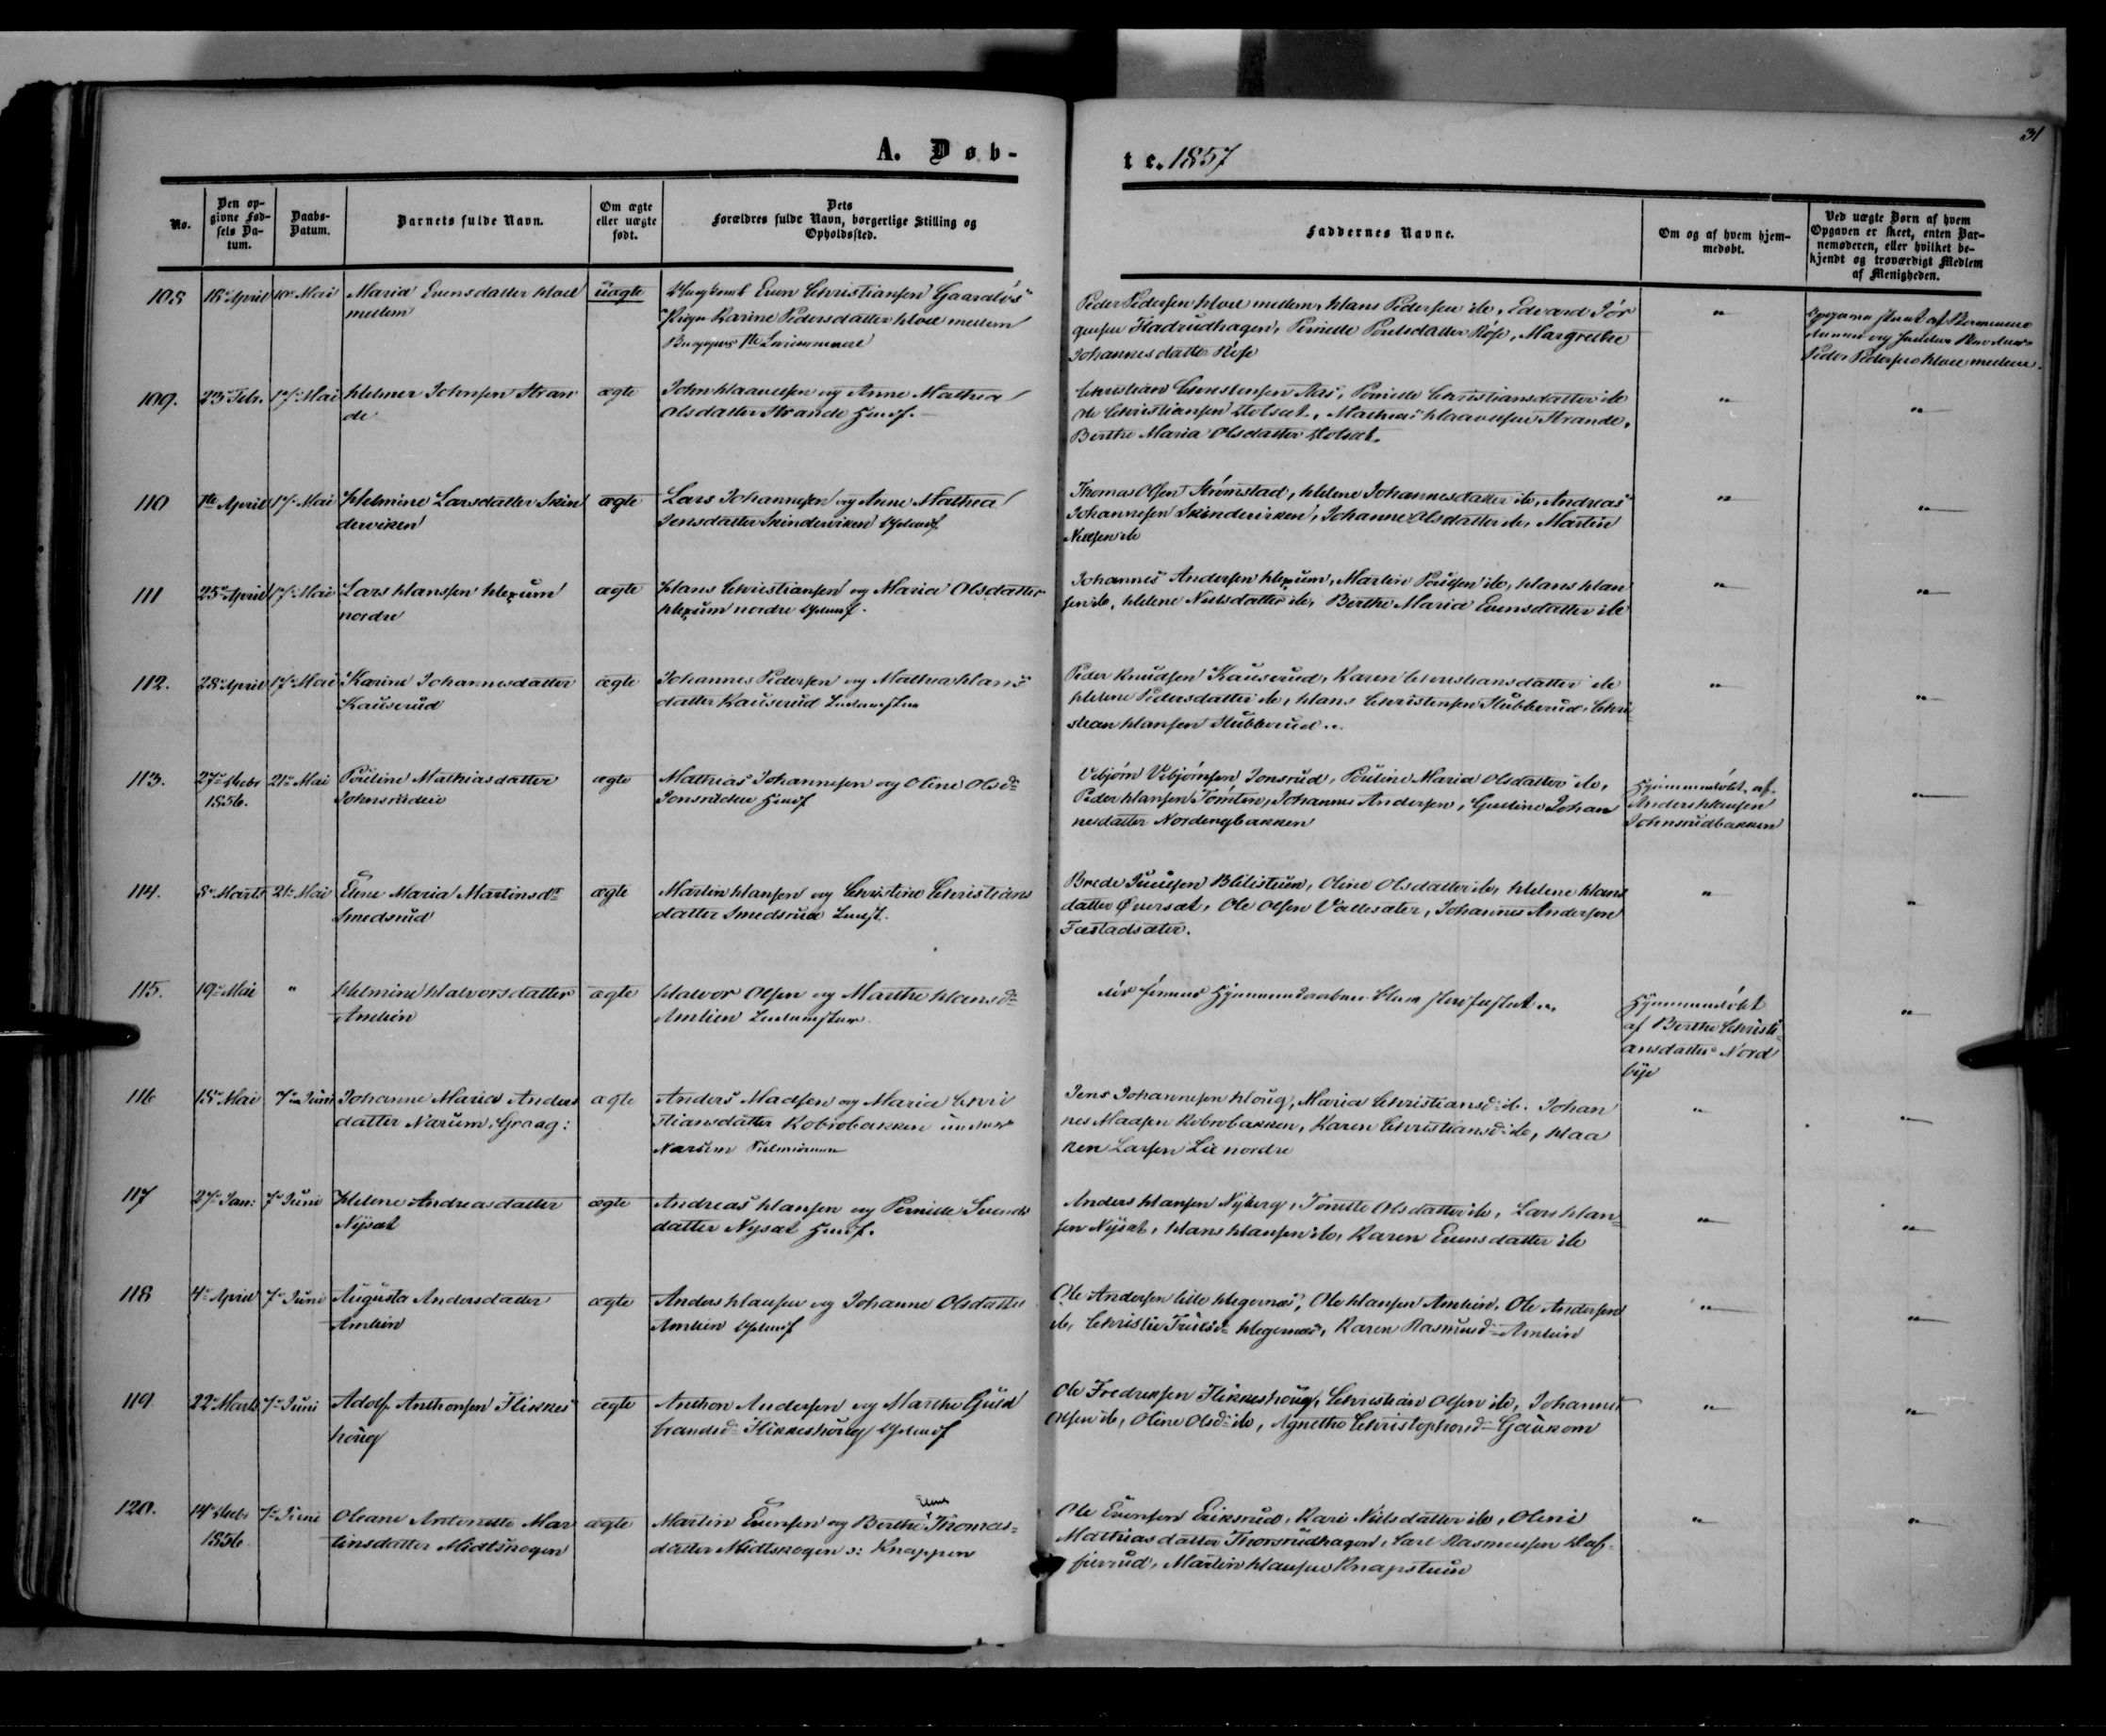 31
A. Døb-
te. 1857
No.
Den op-
givne Fød-
sels Da-
tum.
Daabs-
Datum.
Barnets fulde Navn.
Om ægte
eller uægte
født.
Dets
Forældres fulde Navn, borgerlige Stilling og
Opholdssted.
Faddernes Navne.
Om og af hvem hjem-
medøbt.
Ved uægte Børn af hvem
Opgaven er skeet, enten Bar-
nemoderen, eller hvilket be-
kjendt og troværdigt Medlem
af Menigheden.
108 18 April 10 Mai Maria Evensdatter Hoel
mellem
uægte
Even Christiansen Gaardløs
Pigen Karine Pedersdatter Hoel mellem
Peder Pedersen Hoel mellem, Hans Pedersen ib, Edvard Jør
gensen Fladrudhagen, Pernille Poulsdatter Røse, Margrethe
Johannesdatter Røse
"
Opgaven skeet af
Peder Pedersen Hoel mellem.
109. 23 Febr. 17 Mai Helmer Johnsen Stran
de
ægte
John Haavelsen og Anne Mathea
Olsdatter Strande Huusf.
Christian Christensen Aas, Pernille Christiansdatter ib
Ole Christiansen Holsæt, Mathias Haavelsen Strande,
Berthe Maria Olsdatter Holsæt.
"
"
110 1te April 17 Mai Helmine Larsdatter Skin
derviken
ægte
Lars Johannesen og Anne Mathea
Jensdatter Skinderviken
Thomas Olsen Strømstad, Helene Johannesdatter ib, Andreas
Johannesen Skinderviken, Johanne Olsdatter ib, Martin
Nielsen ib
"
"
111 25 April 17 Mai Lars Hanssen Hexum
nordre
ægte
Hans Christiansen og Maria Olsdatter
Hexum nordre
Johannes Andersen Hexum, Martin Poulsen ib, Hans Han
sen ib, Helene Nielsdatter ib, Berthe Maria Evensdatter ib
"
"
112. 28 April 17 Mai Karine Johannesdatter
Kauserud
ægte
Johannes Pedersen og Mathea Hans
datter Kauserud
Peder Knudsen Kauserud, Karen Christiansdatter ib
Helene Pedersdatter ib, Hans Christensen Stubberud, Chri
stian Hansen Stubberud
"
"
113. 27 Decbr
1856. 21 Mai Pouline Mathiasdatter
Johnsrudeie
ægte
Mathias Johannesen og Oline Olsd
Jonsrudeie Huusf
Vebjørn Vebjørnsen Jonsrud, Pouline Maria Olsdatter ib,
Peder Hansen Tømten, Johannes Andersen, Gusline Johan
nesdatter Nordengbakken
Hjemmedøbt af
Anders Hansen
Johnsrudbakken
"
114. 8 Marts 21 Mai Eline Maria Martinsd
Smedsrud
ægte
Martin Hansen og Christine Christians
datter Smedsrud
Brede Juulsen Blilistuen, Oline Olsdatter ib, Helene Hans
datter Øversæt, Ole Olsen Vallesæter, Johannes Andersen
Fæstadsæter.
"
"
115. 19 Mai " Helmine Halvorsdatter
Amlien
ægte
Halvor Olsen og Marthe Hansd
Amlien
Hjemmedøbt
af Berthe Christi
ansdatter Nord
bye
"
116 18 Mai 7 Juni Johanne Maria Anders
datter Narum, Graag:
ægte
Anders Madsen og Maria Chri
stiansdatter Kobrobakken under
Narum
Jens Johannesen Houg, Maria Christiansd ib. Johan
nes Madsen Kobrobakken, Karen Christiansd ib, Haa
ken Larsen Lie nordre
"
"
117 27 Jan: 7 Juni Helene Andreasdatter
Nysæt
ægte
Andreas Hansen og Pernille Svends
datter Nysæt Huusf.
Anders Hansen Nyberg, Tonette Olsdatter ib, Lars Han-
sen Nysæt, Hans Hansen ib, Karen Evensdatter ib
"
"
118 4 April 7 Juni Augusta Andersdatter
Amlien
ægte
Anders Hansen og Johanne Olsdatter
Amlien
Ole Andersen lille Hegernæs, Ole Hansen Amlien, Ole Andersen
ib, Christie Truelsd Hegernæs, Karen Rasmusd Amlien
"
"
119 22 Marts 7 Juni Adolf Anthonsen Flikkes
houg
ægte
Anthon Andersen og Marthe Guld
brandsd Flikkeshoug
Ole Fredriksen Flikkeshoug, Christian Olsen ib, Johannes
Olsen ib, Oline Olsd ib, Agnethe Christophersd Gaukom
"
"
120. 14 Decbr
1856 7 Juni Oleane Antonette Mar
tinsdatter Midtskogen
ægte
Martin Evensen og Berthe Thomas-
datter Midtskogen v: Knappen
Ole Evensen Eriksrud, Kari Nielsdatter ib, Oline
Mathiasdatter Thorsrudhagen, Carl Rasmussen Haf-
fierrud, Martin Hansen Knapstuen
"
"